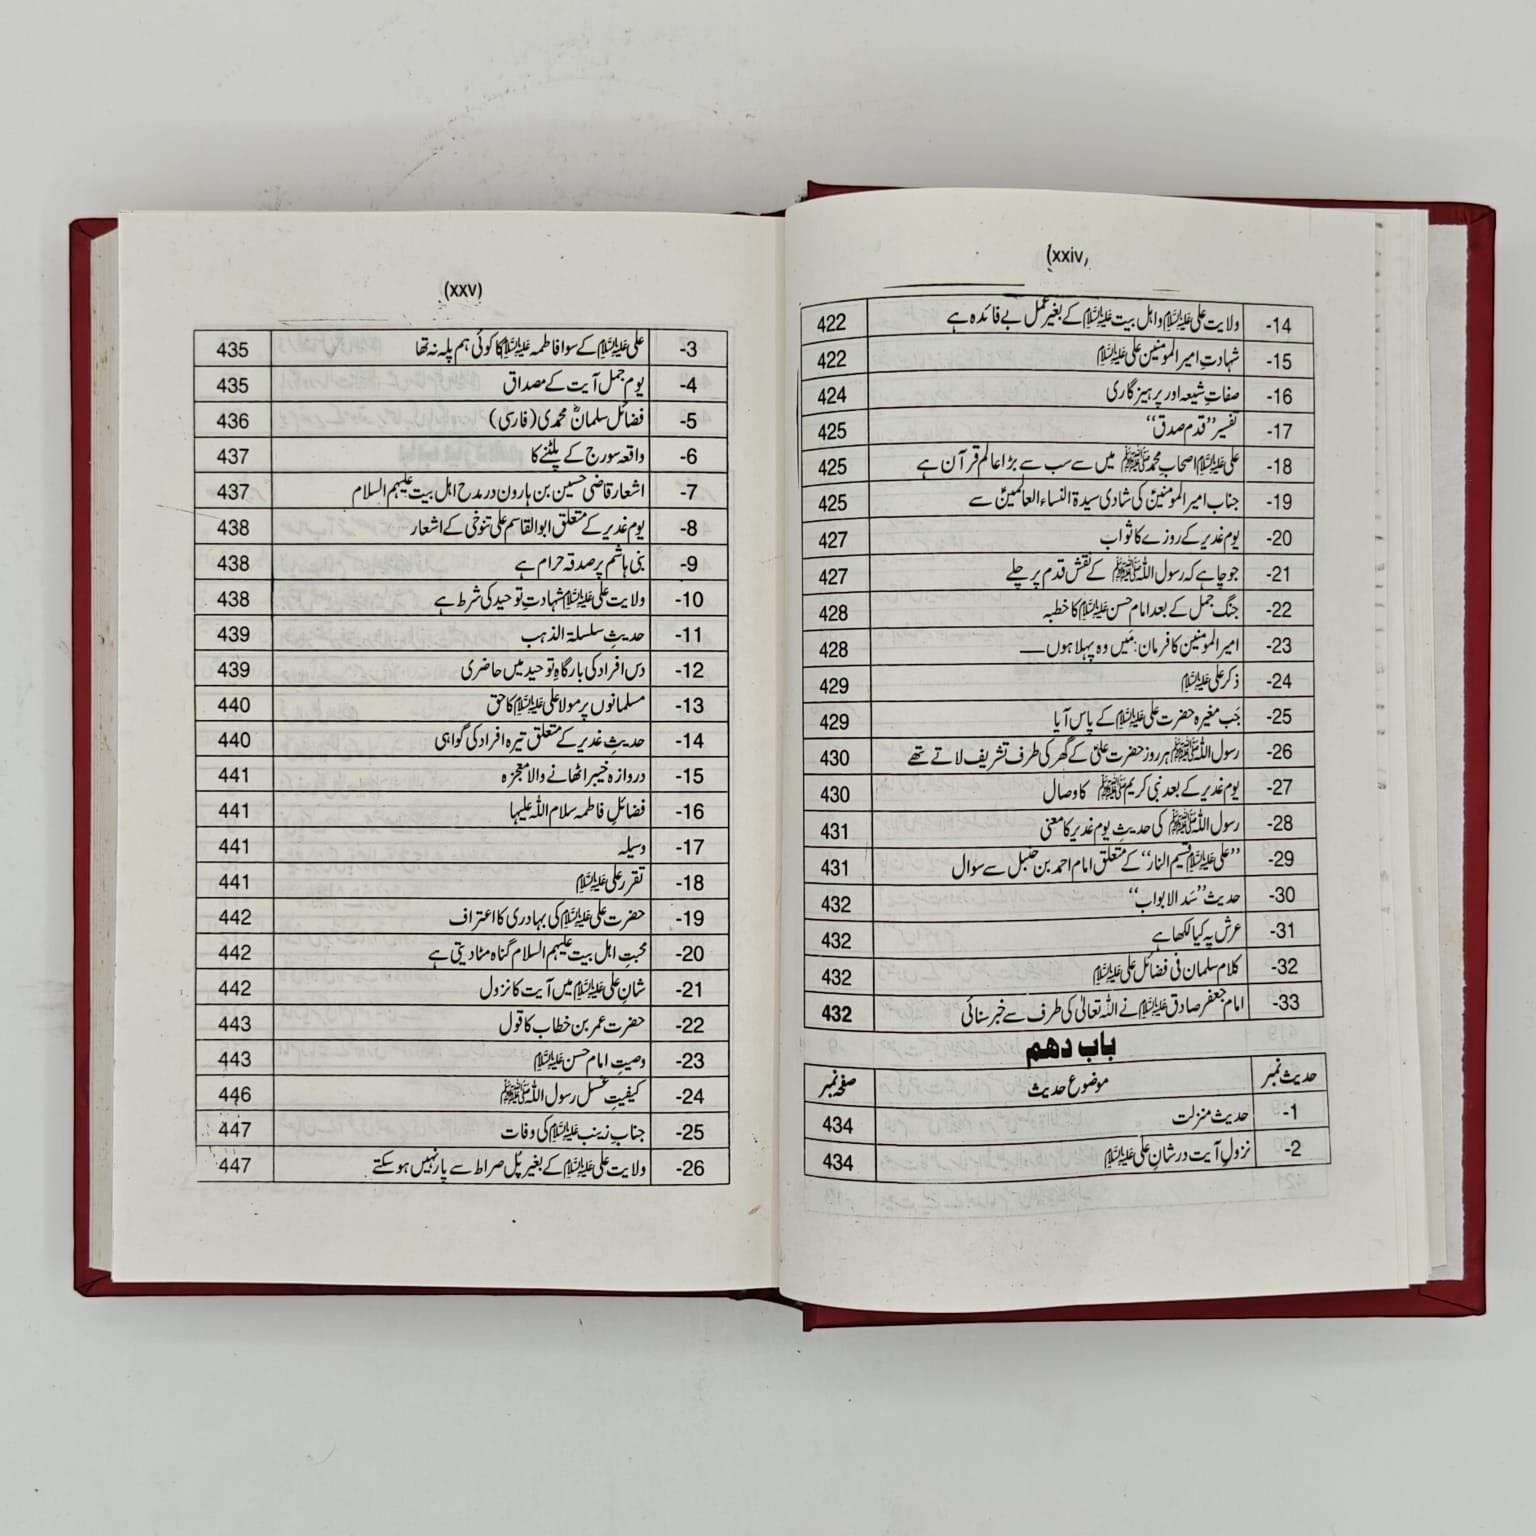 (xxiv)
14- ولایت علی علیہ السلام و اہل بیت علیہم السلام کے بغیر عمل بے فائدہ ہے 422
15- شہادتِ امیر المومنین علی علیہ السلام 422
16- صفاتِ شیعہ اور پرہیزگاری 424
17- تفسیر ’’قدم صدق‘‘ 425
18- علی علیہ السلام اصحابِ محمد ﷺ میں سے سب سے بڑا عالم قرآن ہے 425
19- جناب امیر المومنینؑ کی شادی سیدۃ النساء العالمینؑ سے 425
20- یوم غدیر کے روزے کا ثواب 427
21- جو چاہے کہ رسول اللہ ﷺ کے نقش قدم پر چلے 427
22- جنگ جمل کے بعد امام حسن علیہ السلام کا خطبہ 428
23- امیر المومنین کا فرمان: مَیں وہ پہلا ہوں ــــ 428
24- ذکر علی علیہ السلام 429
25- جَب مغیرہ حضرت علی علیہ السلام کے پاس آیا 429
26- رسول اللہ ﷺ ہر روز حضرت علیؑ کے گھر کی طرف تشریف لاتے تھے 430
27- یوم غدیر کے بعد نبی کریم ﷺ کا وصال 430
28- رسول اللہ ﷺ کی حدیثِ یوم غدیر کا معنی 431
29- ’’علی علیہ السلام قسیم النار‘‘ کے متعلق امام احمد بن حنبل سے سوال 431
30- حدیث ’’سَد الابواب‘‘ 432
31- عرش پہ کیا لکھا ہے 432
32- کلام سلمان فی فضائل علی علیہ السلام 432
33- امام جعفر صادق علیہ السلام نے اللہ تعالیٰ کی طرف سے خبر سنائی 432
باب دهم
حدیث نمبر موضوع حدیث صفحہ نمبر
1- حدیث منزلت 434
2- نزولِ آیت در شانِ علی علیہ السلام 434
(xxv)
3- علی علیہ السلام کے سوا فاطمہ علیہا السلام کا کوئی ہم پلہ نہ تھا 435
4- یوم جمل آیت کے مصداق 435
5- فضائل سلمانؓ محمدی (فارسی) 436
6- واقعہ سورج کے پلٹنے کا 437
7- اشعار قاضی حسین بن ہارون در مدح اہل بیت علیہم السلام 437
8- یوم غدیر کے متعلق ابوالقاسم علی تنوخی کے اشعار 438
9- بنی ہاشم پر صدقہ حرام ہے 438
10- ولایت علی علیہ السلام شہادتِ توحید کی شرط ہے 438
11- حدیثِ سلسلۃ الذہب 439
12- دس افراد کی بارگاہِ توحید میں حاضری 439
13- مسلمانوں پر مولا علی علیہ السلام کا حق 440
14- حدیثِ غدیر کے متعلق تیرہ افراد کی گواہی 440
15- دروازہ خیبر اٹھانے والا معجزہ 441
16- فضائلِ فاطمہ سلام اللہ علیہا 441
17- وسیلہ 441
18- تقرر علی علیہ السلام 441
19- حضرت علی علیہ السلام کی بہادری کا اعتراف 442
20- محبتِ اہل بیت علیہم السلام گناہ مٹا دیتی ہے 442
21- شانِ علی علیہ السلام میں آیت کا نزول 442
22- حضرت عمر بن خطاب کا قول 443
23- وصیتِ امام حسن علیہ السلام 443
24- کیفیتِ غسل رسول اللہ ﷺ 446
25- جنابِ زینب علیہا السلام کی وفات 447
26- ولایت علی علیہ السلام کے بغیر پُل صراط سے پار نہیں ہو سکتے 447